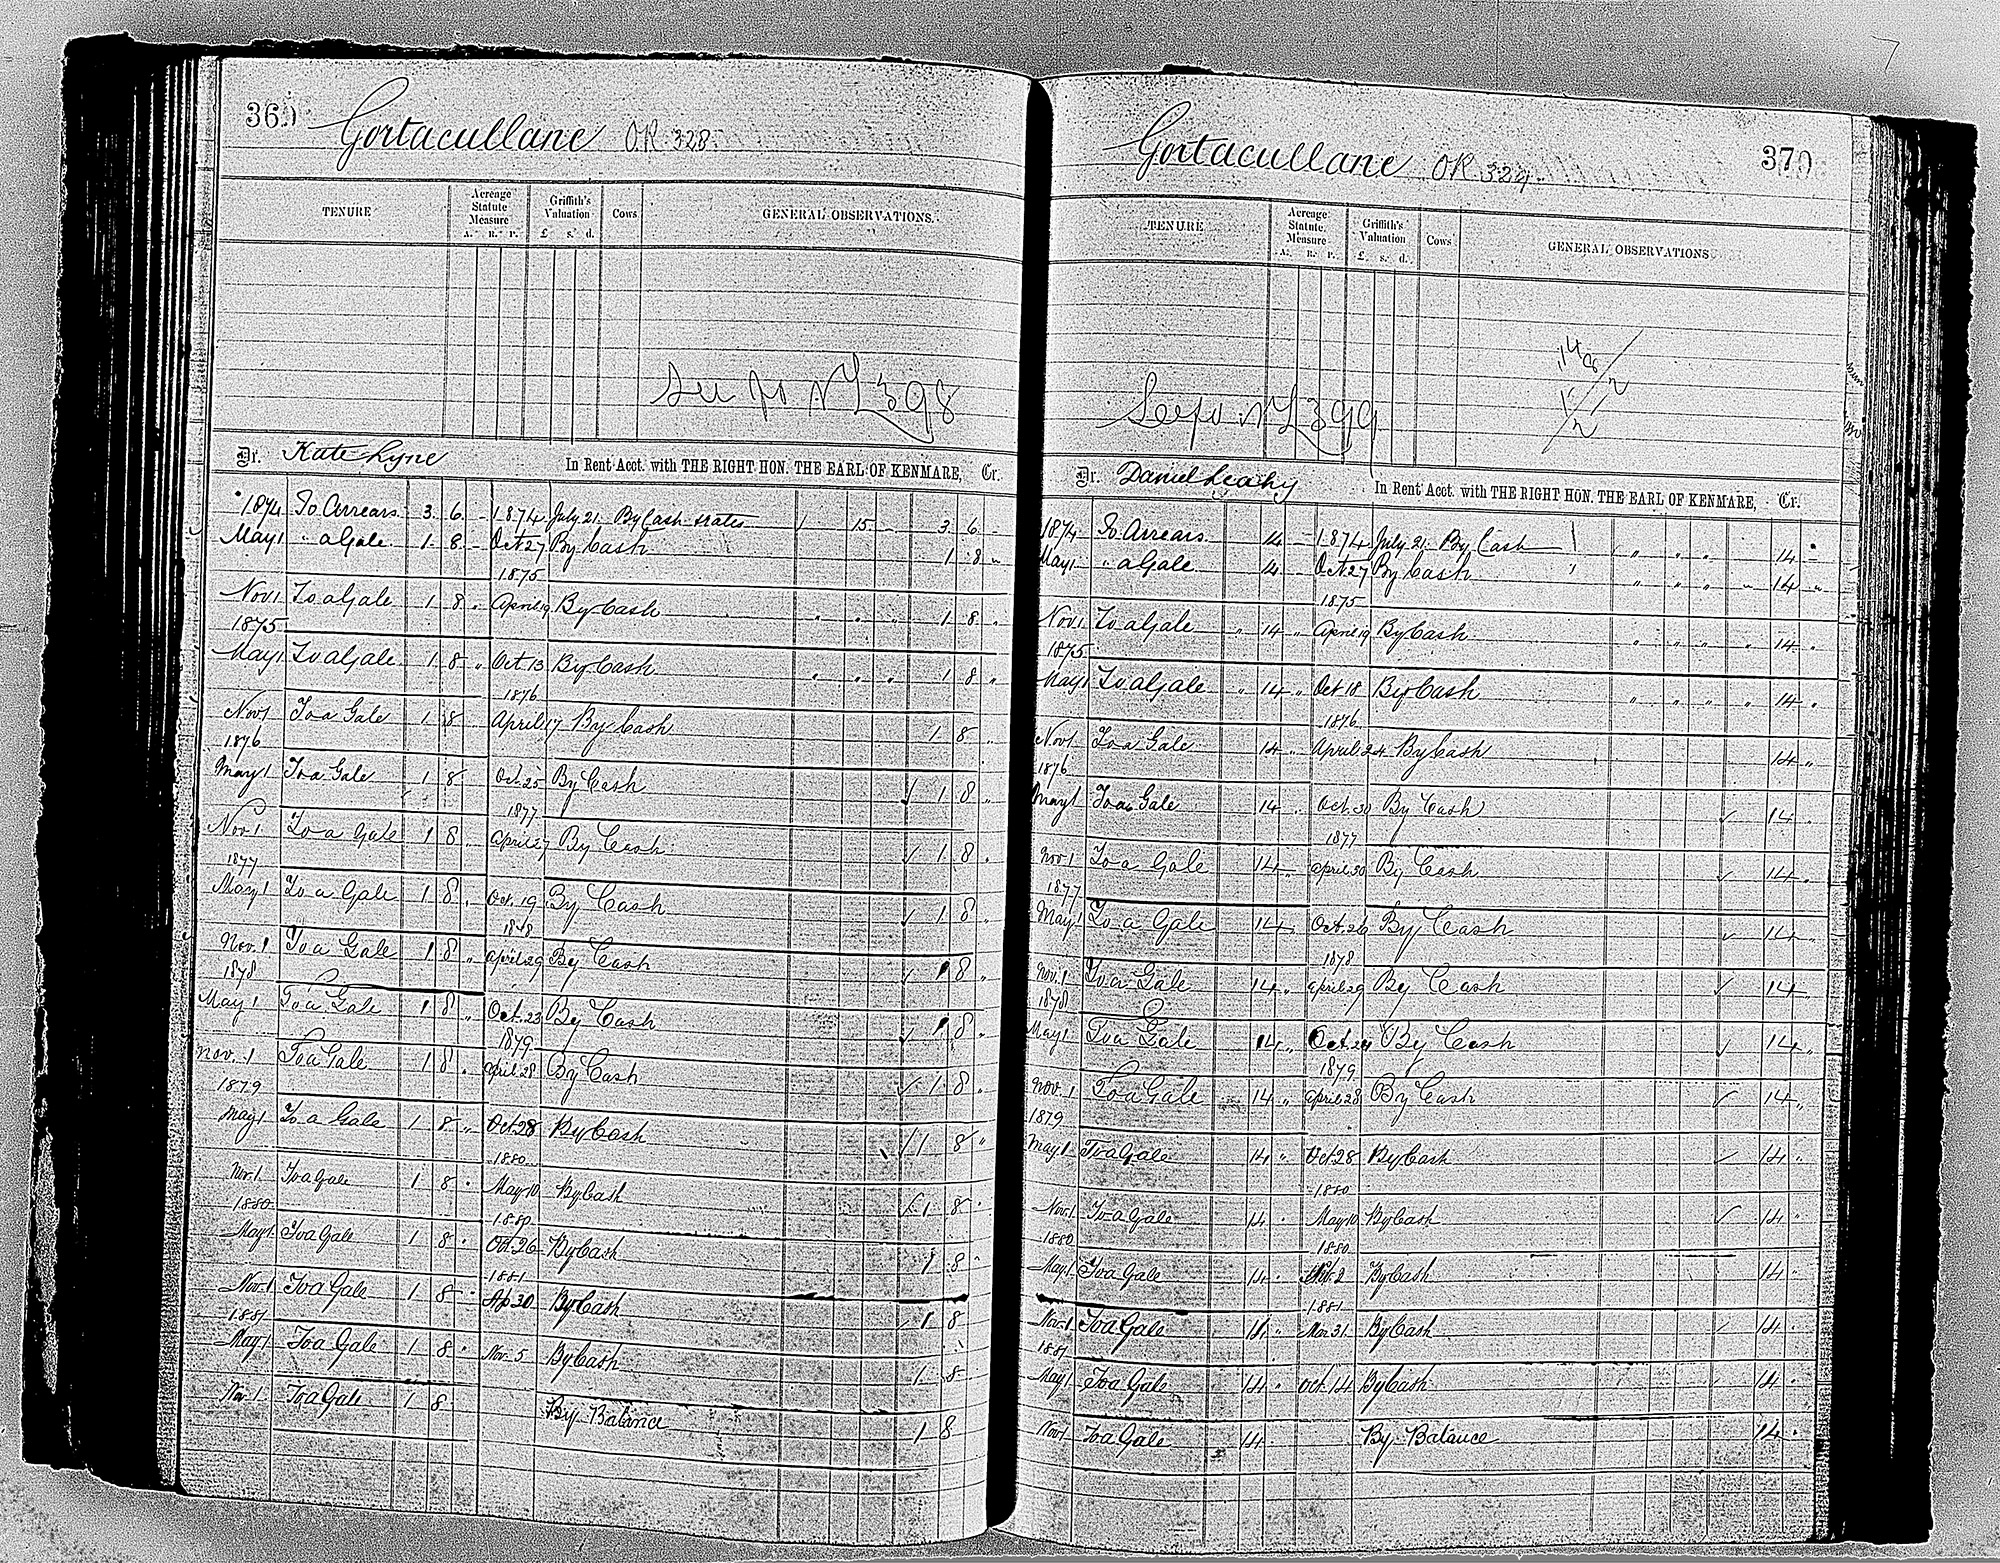 369 Gortacullane OR. 328.
TENURE
Acreage Statute Measure
A. R. P.
Griffith's Valuation
£ s. d.
Cows
GENERAL OBSERVATIONS.
NL 398
Dr. Kate Lyne In Rent Acct. with THE RIGHT HON. THE EARL OF KENMARE, Cr.
1874 To Arrears 3 6 - 1874 July 21 By Cash & rates 15 - 3 6 -
May 1 " a Gale 1 8 - Oct 27 By Cash 1 8 "
1875
Nov 1 To a Gale 1 8 " April 19 By Cash " " " 1 8 "
1875
May 1 To a Gale 1 8 " Oct 13 By Cash " " " 1 8 "
1876
Nov 1 To a Gale 1 8 April 17 By Cash 1 8 "
1876
May 1 To a Gale 1 8 Oct. 25 By Cash ✓ 1 8 "
1877
Nov 1 To a Gale 1 8 " April 27 By Cash ✓ 1 8 "
1877
May 1 To a Gale 1 8 " Oct. 19 By Cash ✓ 1 8 "
1878
Nov. 1 To a Gale 1 8 " April 29 By Cash ✓ 1 8 "
1878
May 1 To a Gale 1 8 " Oct. 23 By Cash ✓ 1 8 "
1879
Nov. 1 To a Gale 1 8 " April 28 By Cash ✓ 1 8 "
1879
May 1 To a Gale 1 8 " Oct 28 By Cash ✓ 1 8 "
1880
Nov. 1 To a Gale 1 8 " May 10 By Cash ✓ 1 8 "
1880 1880
May 1 To a Gale 1 8 " Oct. 26 By Cash 1 8 "
1881
Nov. 1 To a Gale 1 8 " Ap 30 By Cash ✓ 1 8
1881
May 1 To a Gale 1 8 " Nov. 5 By Cash 1 8
Nov. 1 To a Gale 1 8 By Balance 1 8
Gortacullane OR. 329. 370
TENURE
Acreage Statute Measure
A. R. P.
Griffith's Valuation
£ s. d.
Cows
GENERAL OBSERVATIONS
See fo NL 399
Dr. Daniel Leahy In Rent Acct. with THE RIGHT HON. THE EARL OF KENMARE, Cr.
1874 To Arrears 14 - 1874 July 21 By Cash " " " 14 "
May 1 " a Gale 14 - Oct. 27 By Cash " " " " 14 "
1875
Nov. 1 To a Gale " 14 " April 19 By Cash " " " " 14 "
1875
May 1 To a Gale " 14 " Oct 18 By Cash " " " " 14 "
1876
Nov 1 To a Gale 14 " April 24 By Cash 14 "
1876
May 1 To a Gale 14 " Oct. 30 By Cash ✓ 14 "
1877
Nov. 1 To a Gale 14 " April 30 By Cash ✓ 14 "
1877
May 1 To a Gale 14 " Oct. 26 By Cash ✓ 14 "
1878
Nov. 1 To a Gale 14 " April 29 By Cash ✓ 14 "
1878
May 1 To a Gale 14 " Oct. 24 By Cash ✓ 14 "
1879
Nov. 1 To a Gale 14 " April 28 By Cash ✓ 14 "
1879
May 1 To a Gale 14 " Oct. 28 By Cash ✓ 14 "
1880
Nov. 1 To a Gale 14 " May 10 By Cash ✓ 14 "
1880 1880
May 1 To a Gale 14 " 2 By Cash 14 "
1881
Nov. 1 To a Gale 14 " Mar 31 By Cash ✓ 14 "
1881
May 1 To a Gale 14 " Oct. 14 By Cash 14 "
Nov 1 To a Gale 14 By Balance 14 "